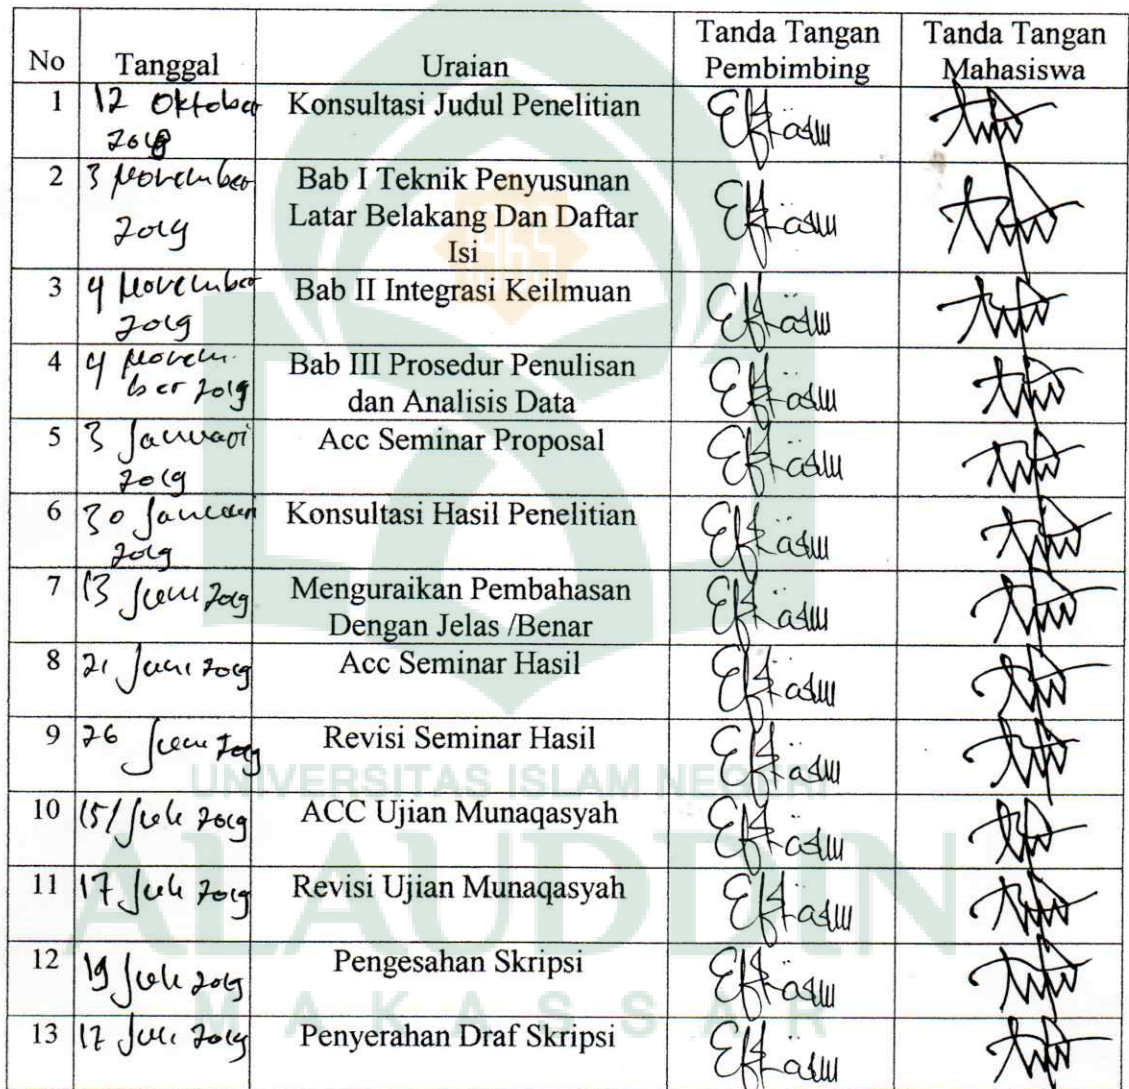 No Tanggal Uraian Tanda Tangan Pembimbing Tanda Tangan Mahasiswa
1 12 Oktober Konsultasi Judul Penelitian
2018
2 3 November Bab I Teknik Penyusunan
2019 Latar Belakang Dan Daftar
Isi
3 4 November Bab II Integrasi Keilmuan
2019
4 4 Novem- Bab III Prosedur Penulisan
ber 2019 dan Analisis Data
5 3 Januari Acc Seminar Proposal
2019
6 30 Januari Konsultasi Hasil Penelitian
2019
7 13 Juni 2019 Menguraikan Pembahasan
Dengan Jelas /Benar
8 21 Juni 2019 Acc Seminar Hasil
9 26 Juni 2019 Revisi Seminar Hasil
10 15/Juli 2019 ACC Ujian Munaqasyah
11 17 Juli 2019 Revisi Ujian Munaqasyah
12 19 Juli 2019 Pengesahan Skripsi
13 17 Juli 2019 Penyerahan Draf Skripsi
1965
UNIVERSITAS ISLAM NEGERI
ALAUDDIN
MAKASSAR